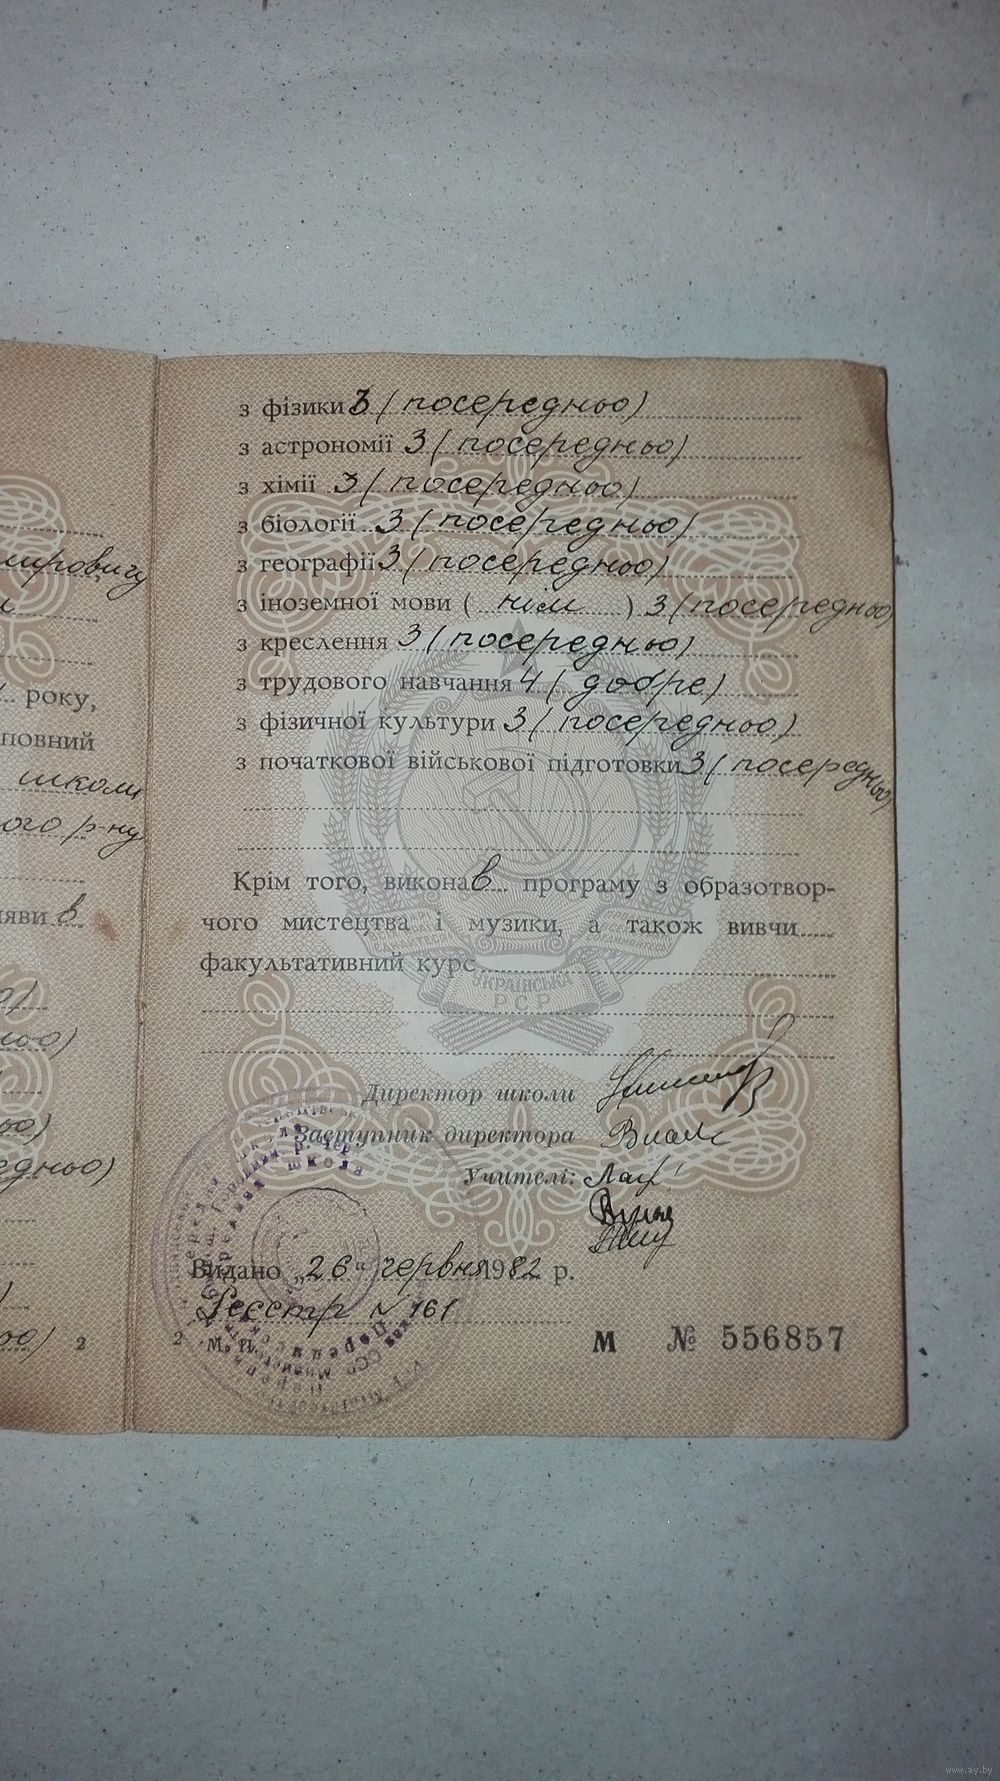 мировичу
року,
повний
школи
ого р-ну
яви в
ньо)
едньо)
2
з фізики 3 (посередньо)
з астрономії 3 (посередньо)
з хімії 3 (посередньо)
з біології 3 (посередньо)
з географії 3 (посередньо)
з іноземної мови ( нім ) 3 (посередньо)
з креслення 3 (посередньо)
з трудового навчання 4 (добре)
з фізичної культури 3 (посередньо)
з початкової військової підготовки 3 (посередньо)
Крім того, викона в програму з образотвор-
чого мистецтва і музики, а також вивчи
факультативний курс
УКРАЇНСЬКА
РСР
Директор школи
Заступник директора
Учителі:
Видано „26“ червня 1982 р.
Реєстр № 161
2 М. П.
М № 556857
www.ay.by